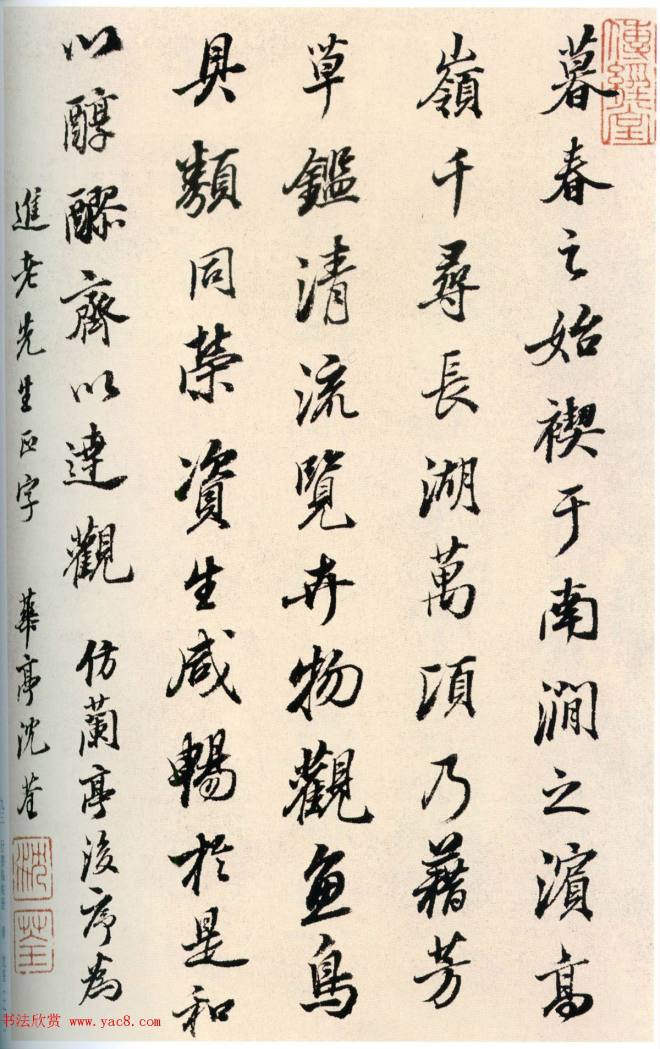 暮春之始禊于南澗之濱高
嶺千尋長湖萬頃乃藉芳
草鑑清流覽卉物觀魚鳥
具類同榮資生咸暢於是和
以醇醪齊以達觀 仿蘭亭後序為
進老先生正字 華亭沈荃
傳經堂
沈荃
书法欣赏 www.yac8.com